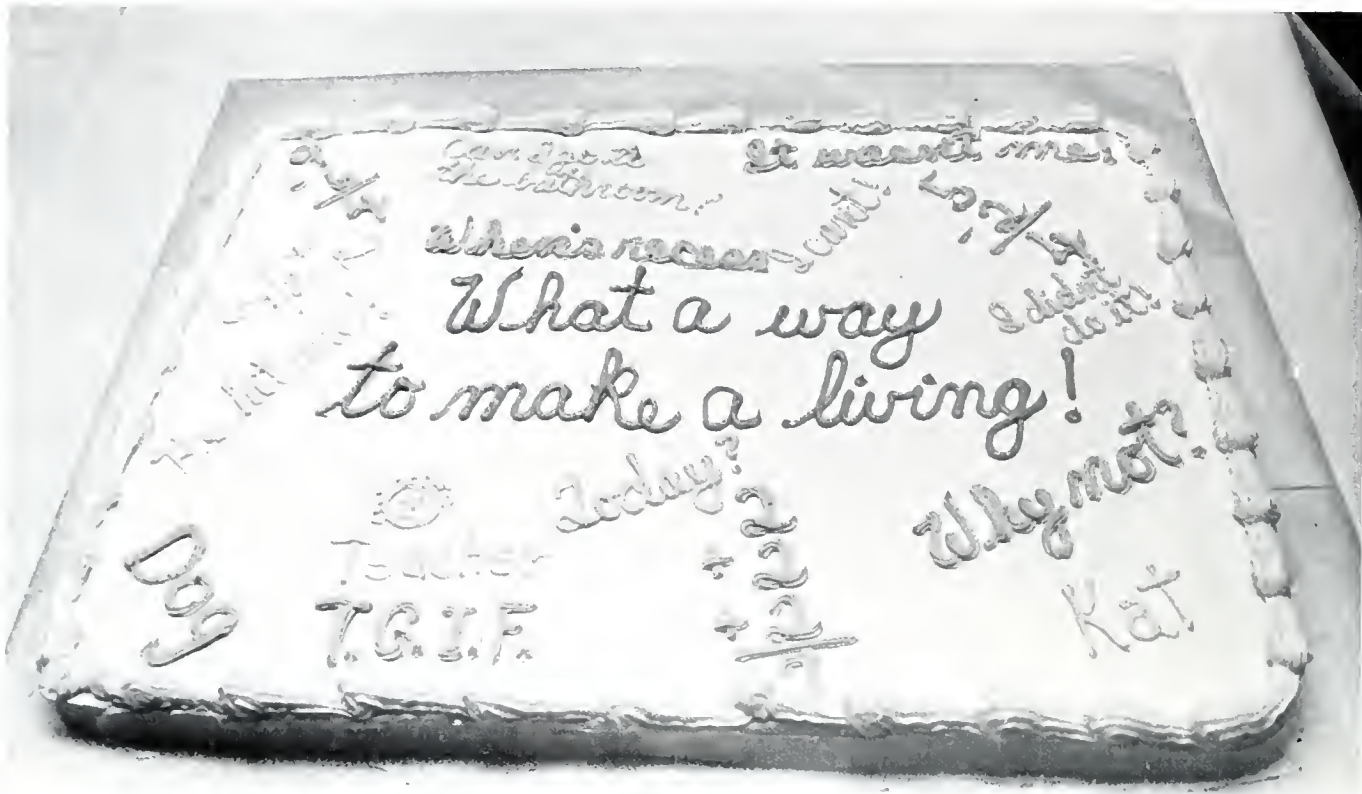 Can I go to
the bathroom?
It wasn't me!
When's recess
I can't!
I didn't
do it!
What a way
to make a living!
Today?
Why not?
Dog
Teacher
T.G.I.F.
2
+2
+2
Kat